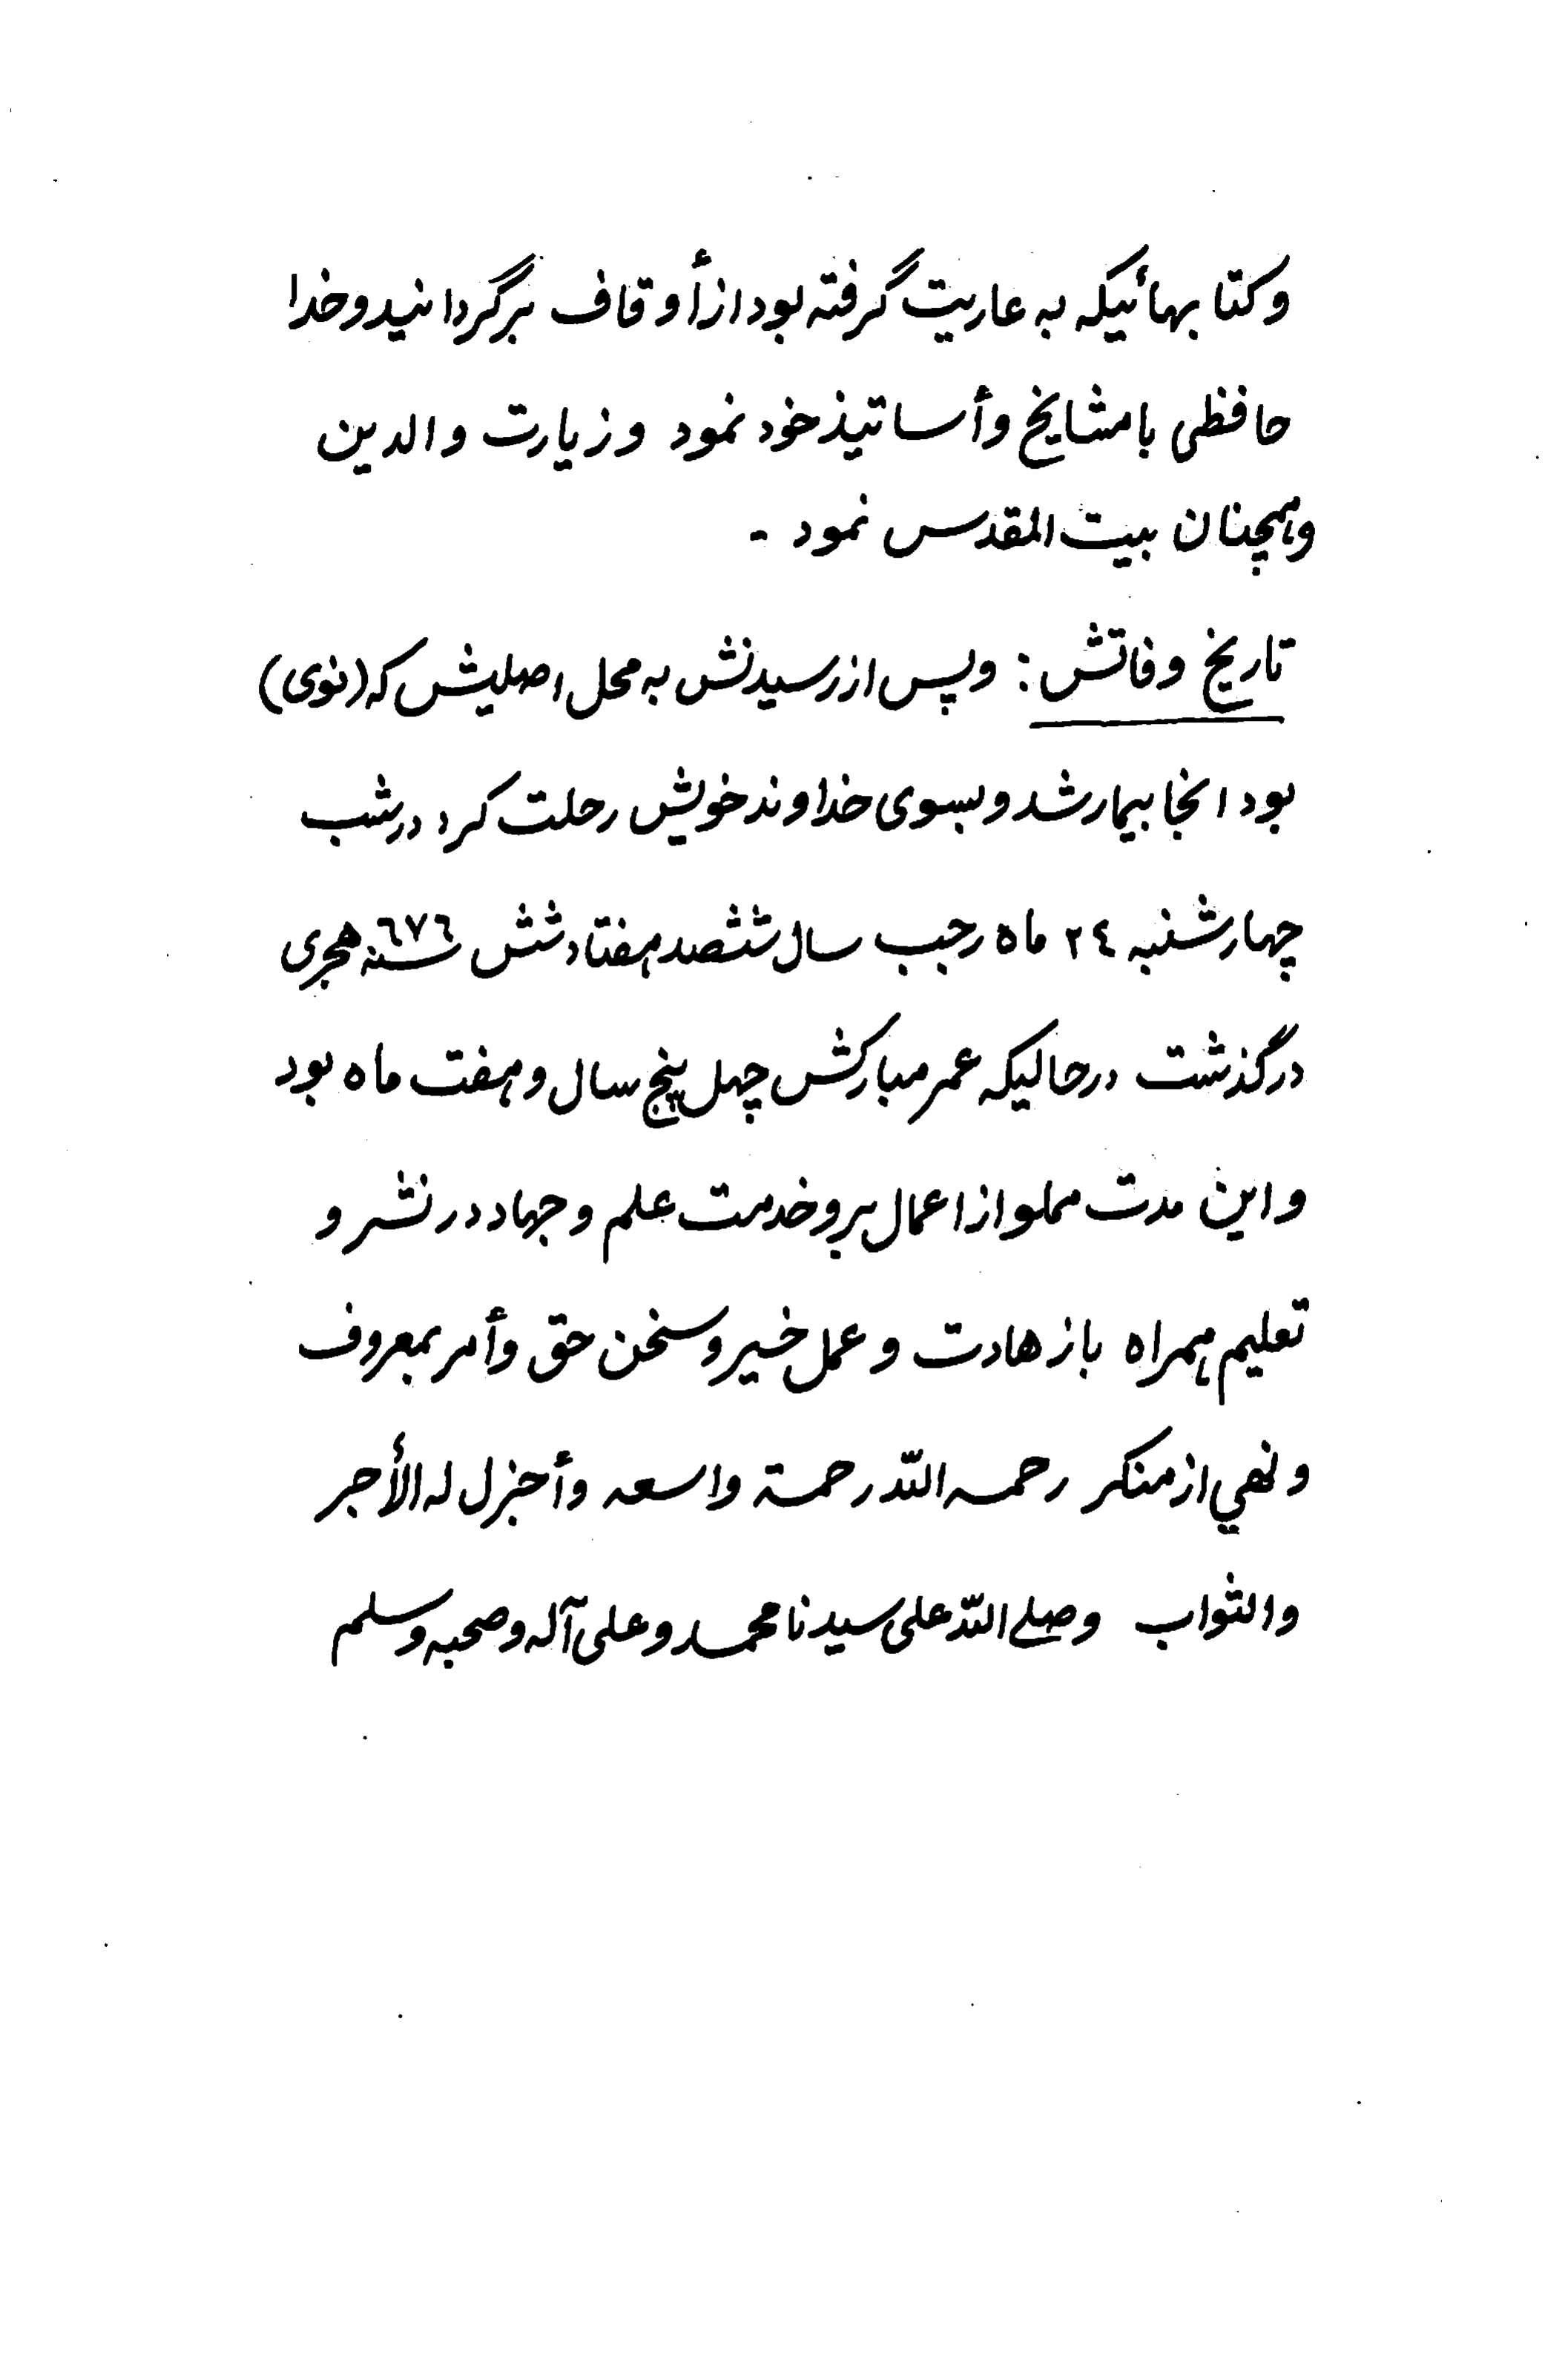 وکتابهائیکه به عاریت گرفته بود از أوقاف برگردانید وخدا
حافظی بامشایخ وأساتیذ خود نمود وزیارت والدین
وهمچنان بیت المقدس نمود -
تاریخ وفاتش : وپس از رسیدنش به محل اصلیش که (نوی)
بود انجا بیمار شد وبسوی خداوند خویش رحلت کرد در شب
چهارشنبه ٢٤ ماه رجب سال ششصد هفتاد شش ٦٧٦ سنه هجری
درگذشت درحالیکه عمر مبارکش چهل پنج سال وهفت ماه بود
واین مدت مملو از اعمال بر وخدمت علم وجهاد در نشر و
تعلیم همراه بازهادت وعمل خیر وسخن حق وأمر بمعروف
ونهي از منکر رحمه الله رحمة واسعه وأجزل له الأجر
والثواب وصلی الله علی سیدنا محمد وعلی آله وصحبه وسلم